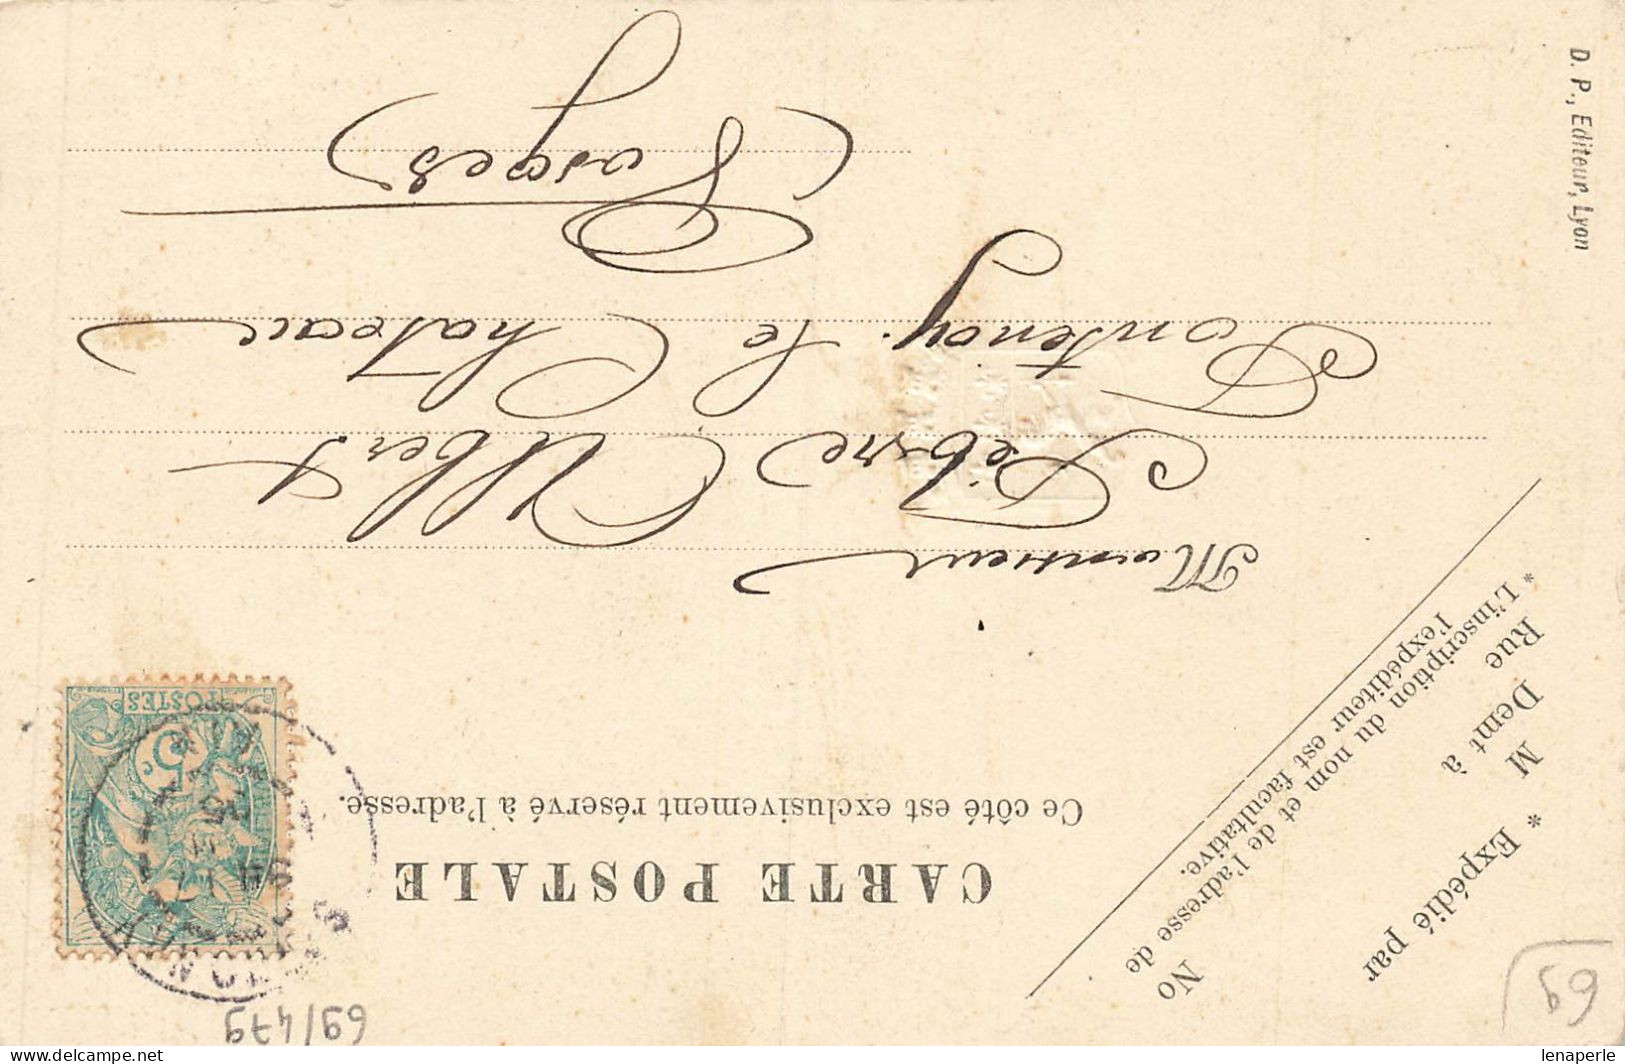 CARTE POSTALE
Ce côté est exclusivement réservé à l'adresse.
Monsieur
Albert
Fontenoy le Chateau
Vosges
* Expédié par
M
Demt à
Rue
No
* L'inscription du nom et de l'adresse de
l'expéditeur est facultative.
D. P., Editeur, Lyon
POSTES
5
c
69/479
69
lenaperle